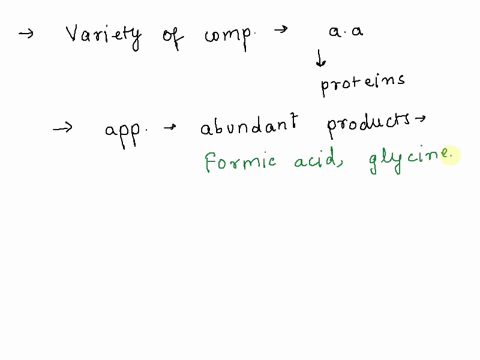 → Variety of comp. → a.a
↓
proteins
→ app. → abundant products →
Formic acid, glycine.